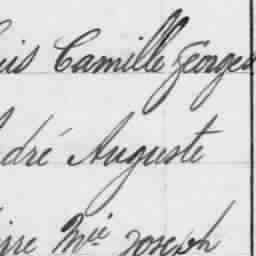 uis Camille Georges
ndré Auguste
erre Mie Joseph